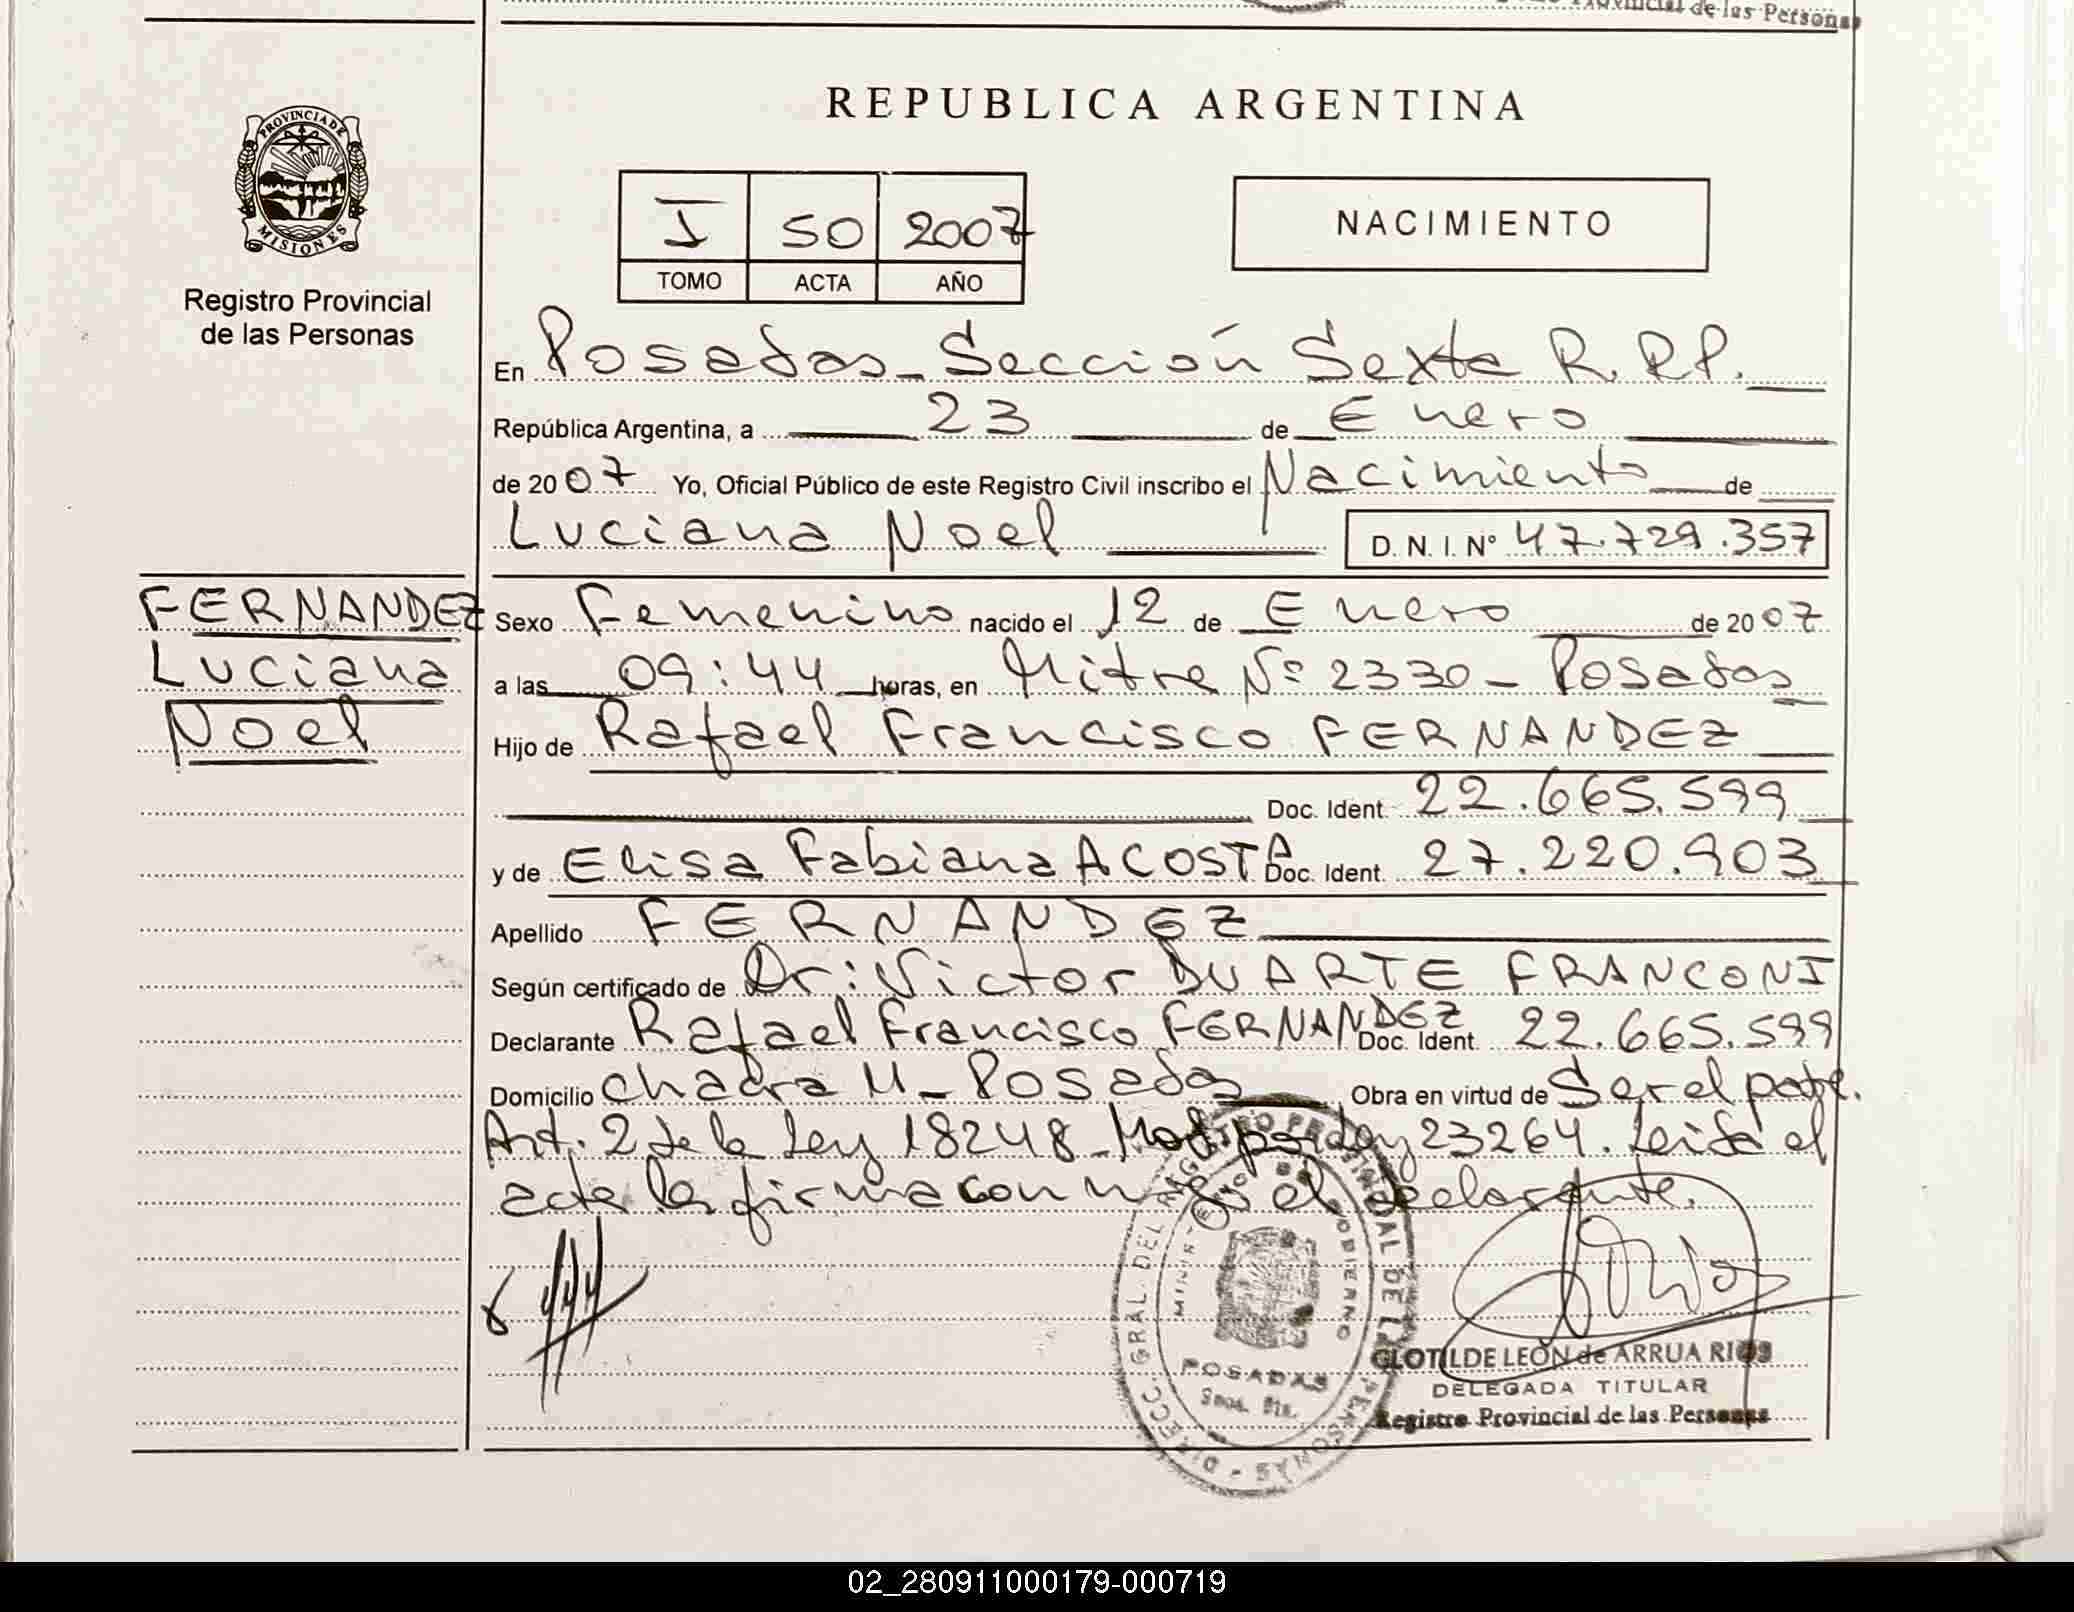 Provincial de las Personas
PROVINCIA DE
MISIONES
Registro Provincial
de las Personas
REPUBLICA ARGENTINA
I 50 2007
TOMO ACTA AÑO
NACIMIENTO
En Posadas - Sección Sexta R.P.P.
República Argentina, a 23 de Enero
de 2007 Yo, Oficial Público de este Registro Civil inscribo el Nacimiento de
Luciana Noel D. N. I. Nº 47.729.357
FERNANDEZ
Luciana
Noel
Sexo Femenino nacido el 12 de Enero de 2007
a las 09:44 horas, en Mitre Nº 2330 - Posadas
Hijo de Rafael Francisco FERNANDEZ
Doc. Ident. 22.665.599
y de Elisa Fabiana ACOSTA Doc. Ident. 27.220.903
Apellido FERNANDEZ
Según certificado de Dr: Victor DUARTE FRANCONI
Declarante Rafael Francisco FERNANDEZ Doc. Ident. 22.665.599
Domicilio Chacra 11 - Posadas Obra en virtud de Ser el padre.
Art. 2 de la Ley 18248 - Mod. por Ley 23264. Leída el
acta la firma con migo el declarante.
DIRECC. GRAL. DEL REGISTRO PROVINCIAL DE LAS PERSONAS
MINISTERIO DE GOBIERNO
POSADAS
CLOTILDE LEÓN de ARRUA RIOS
DELEGADA TITULAR
Registro Provincial de las Personas
02_280911000179-000719